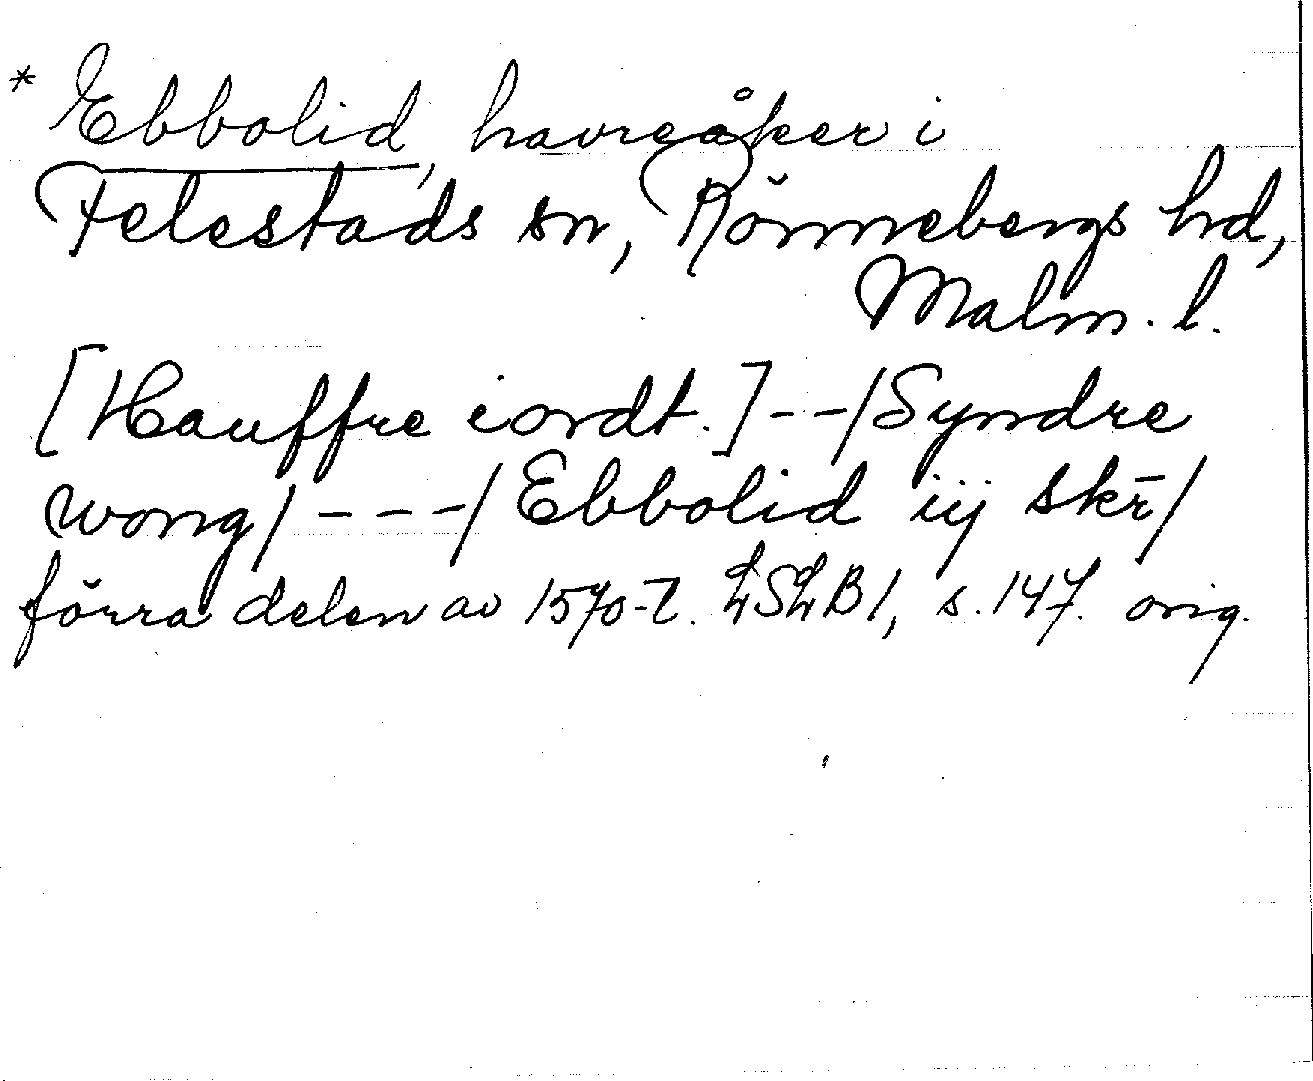 * Ebbolid, havreåker i
Felestads sn, Rönnebergs hd,
Malm. l.
[Hauffre iordt.] - - / Syndre
wong / - - - / Ebbolid iij skr̄ /
förra delen av 1570-t. LSLB 1, s. 147. orig.